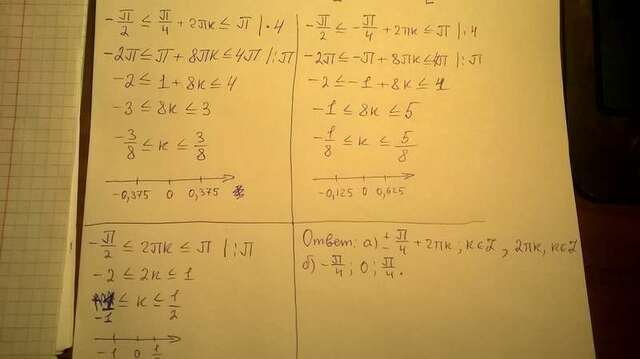 -π/2 ≤ π/4 + 2πк ≤ π |·4
-2π ≤ π + 8πк ≤ 4π |:π
-2 ≤ 1 + 8к ≤ 4
-3 ≤ 8к ≤ 3
-3/8 ≤ к ≤ 3/8
-0,375 0 0,375
-π/2 ≤ -π/4 + 2πк ≤ π |·4
-2π ≤ -π + 8πк ≤ 4π |:π
-2 ≤ -1 + 8к ≤ 4
-1 ≤ 8к ≤ 5
-1/8 ≤ к ≤ 5/8
-0,125 0 0,625
-π/2 ≤ 2πк ≤ π |:π
-2 ≤ 2к ≤ 1
-1 ≤ к ≤ 1/2
-1 0 1/2
Ответ: а) ± π/4 + 2πк, к∈Z, 2πк, к∈Z
б) -π/4; 0; π/4.